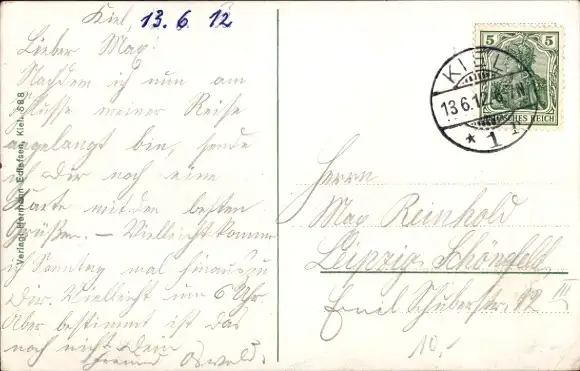 Kiel, 13.6.12
Lieber Max!
Nachdem ich nun am
Schlusse meiner Reise
angelangt bin, sende
ich Dir noch eine
Karte mit den besten
Grüßen. – Vielleicht komme
ich Sonntag mal hinaus zu
Dir. Vielleicht um 6 Uhr.
Aber bestimmt ist das
noch nicht. Dein
Freund Oswald.
Verlag: Hermann Edlefsen, Kiel. 688
5 5
DEUTSCHES REICH
KIEL
13.6.12
* 1
Herrn
Max Reinhold
Leipzig Schönefeld
Emil Schubertstr. 22 III
10.-